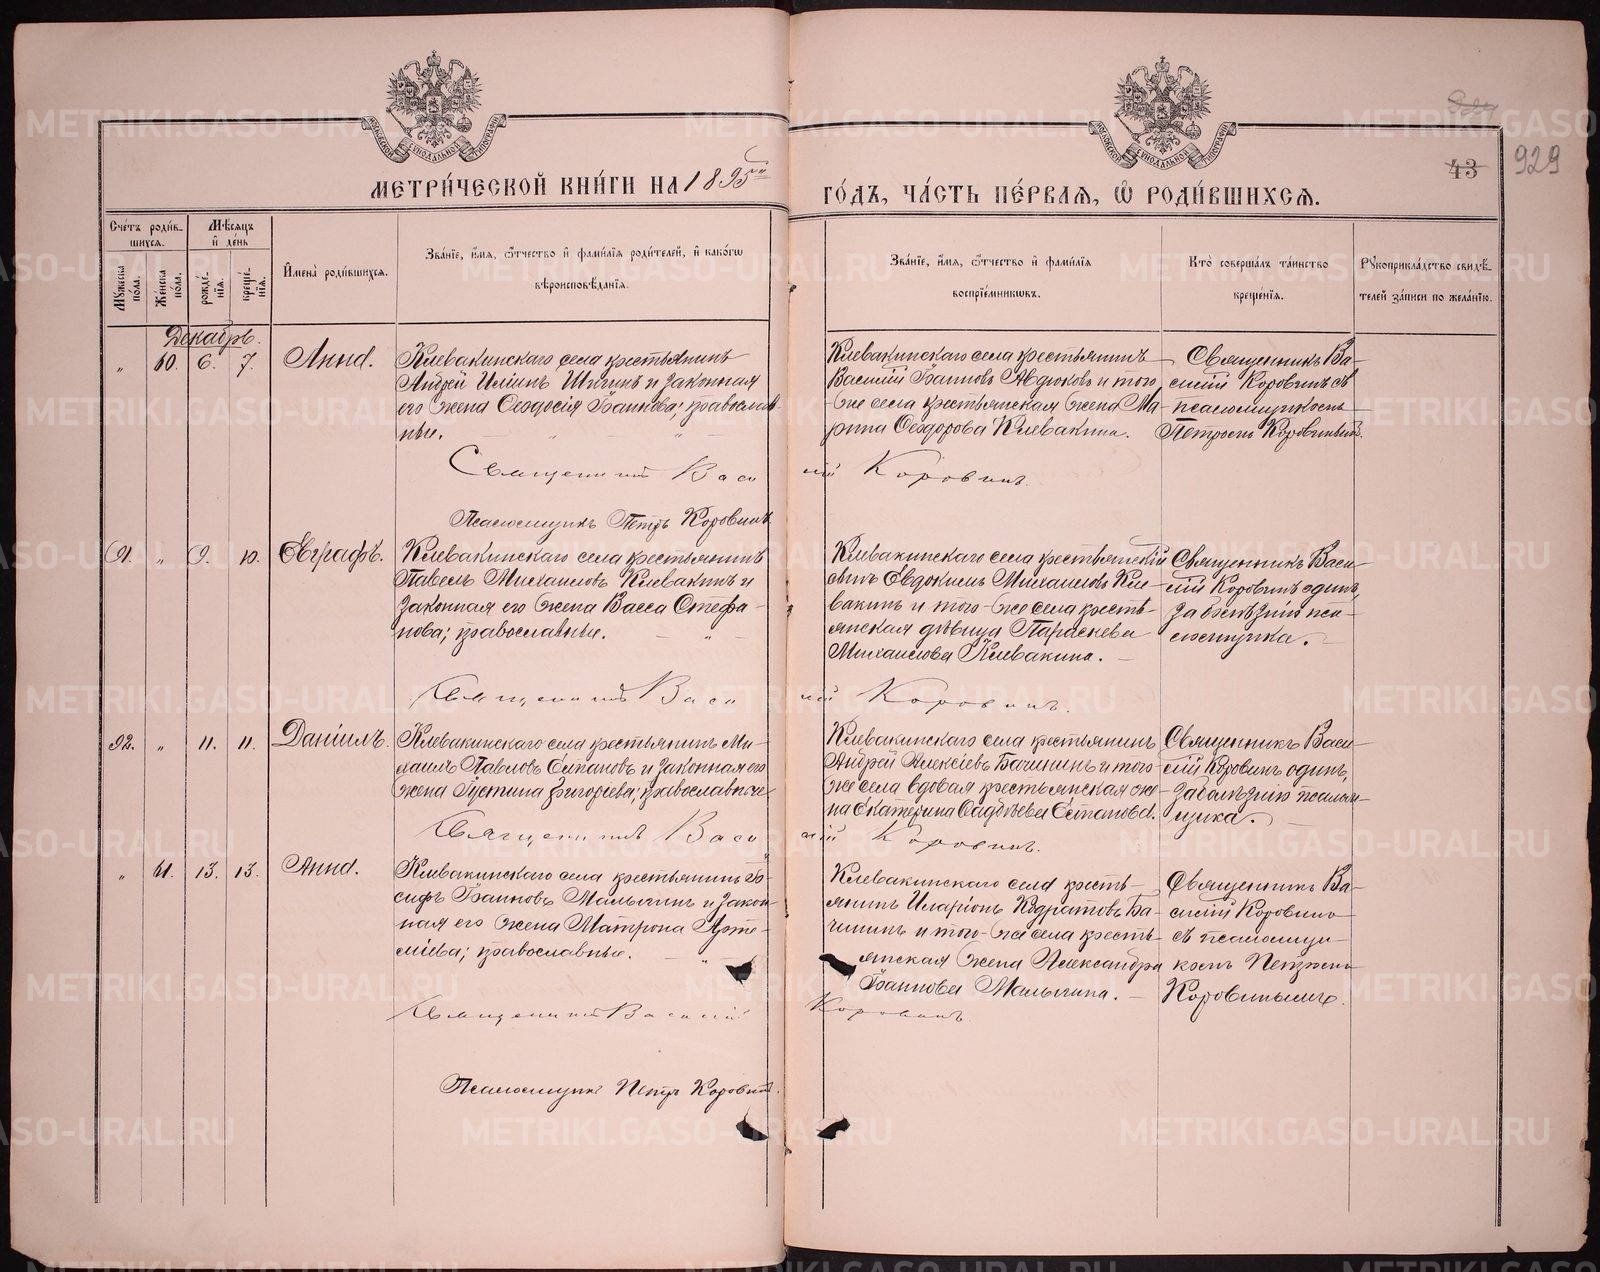 МЕТРИ́ЧЕСКОЙ КНИ́ГИ НА 1895й ГО́ДЪ, ЧА́СТЬ ПЕ́РВАѦ, Ѽ РОДИ́ВШИХСѦ.
43 929
МОСКОВСКОЙ СѴНОДАЛЬНОЙ ТИПОГРАФІИ
МОСКОВСКОЙ СѴНОДАЛЬНОЙ ТИПОГРАФІИ
Сче́тъ роди́в-
шихсѧ.
Мꙋжеска по́ла.
Же́нска по́ла.
Мѣ́сѧцъ
и҆ де́нь
рожде́-
нїѧ.
креще́-
нїѧ.
И҆мена̀ роди́вшихсѧ.
Зва́нїе, и҆́мѧ, ѻ҆́тчество и҆ фами́лїѧ роди́телей, и҆ како́гѡ
вѣроисповѣ́данїѧ.
Зва́нїе, и҆́мѧ, ѻ҆́тчество и҆ фами́лїѧ
воспрїе́мникѡвъ.
Кто̀ соверша́лъ та́инство
креще́нїѧ.
Рꙋкоприкла́дство свидѣ́-
телей за́писи по жела́нїю.
Декабрь.
„ 60. 6. 7. Анна.
Клевакинскаго села крестьянинъ
Андрей Иліинъ Шигинъ и законная
его жена Ѳеодосія Іванова; православ-
ные.
Клевакинскаго села крестьянинъ
Василій Іванновъ Авдюковъ и того
же села крестьянская жена Ма-
рина Ѳеодорова Клевакина.
Священникъ Ва-
силій Коровинъ съ
псаломщикомъ
Петромъ Коровинымъ.
Священникъ Василій Коровинъ.
Псаломщикъ Петръ Коровинъ
91. „ 9. 10. Евграфъ.
Клевакинскаго села крестьянинъ
Павелъ Михаиловъ Клевакинъ и
законная его жена Васса Стефа-
нова; православные.
Клевакинскаго села крестьянскій
сынъ Евдокимъ Михаиловъ Кле-
вакинъ и того-же села кресть-
янская дѣвица Параскева
Михаилова Клевакина.
Священникъ Васи-
лій Коровинъ одинъ,
за болѣзнію пса-
ломщика.
Священникъ Василій Коровинъ.
92. „ 11. 11. Даніилъ.
Клевакинскаго села крестьянинъ Ми-
хаилъ Павловъ Епановъ и законная его
жена Іустина Григорьева; православные
Клевакинскаго села крестьянинъ
Андрей Алексіевъ Бачининъ и того
же села вдовая крестьянская же-
на Екатерина
Священникъ Васи-
лій Коровинъ одинъ,
за болѣзнію псалом-
щика.
Священникъ Василій Коровинъ.
„ 61. 13. 13. Анна.
Клевакинскаго села крестьянинъ Іо-
сифъ Іванновъ Малыгинъ и закон-
ная его жена Матрона Арте-
міева; православные.
Клевакинскаго села кресть-
янинъ Иларіонъ Кодратовъ Ба-
чининъ и того-же села кресть-
янская жена Александра
Іваннова Малыгина.
Священникъ Ва-
силій Коровинъ
съ псаломщи-
комъ Петромъ
Коровинымъ.
Священникъ Василій Коровинъ.
Псаломщикъ Петръ Коровинъ.
METRIKI.GASO-URAL.RU